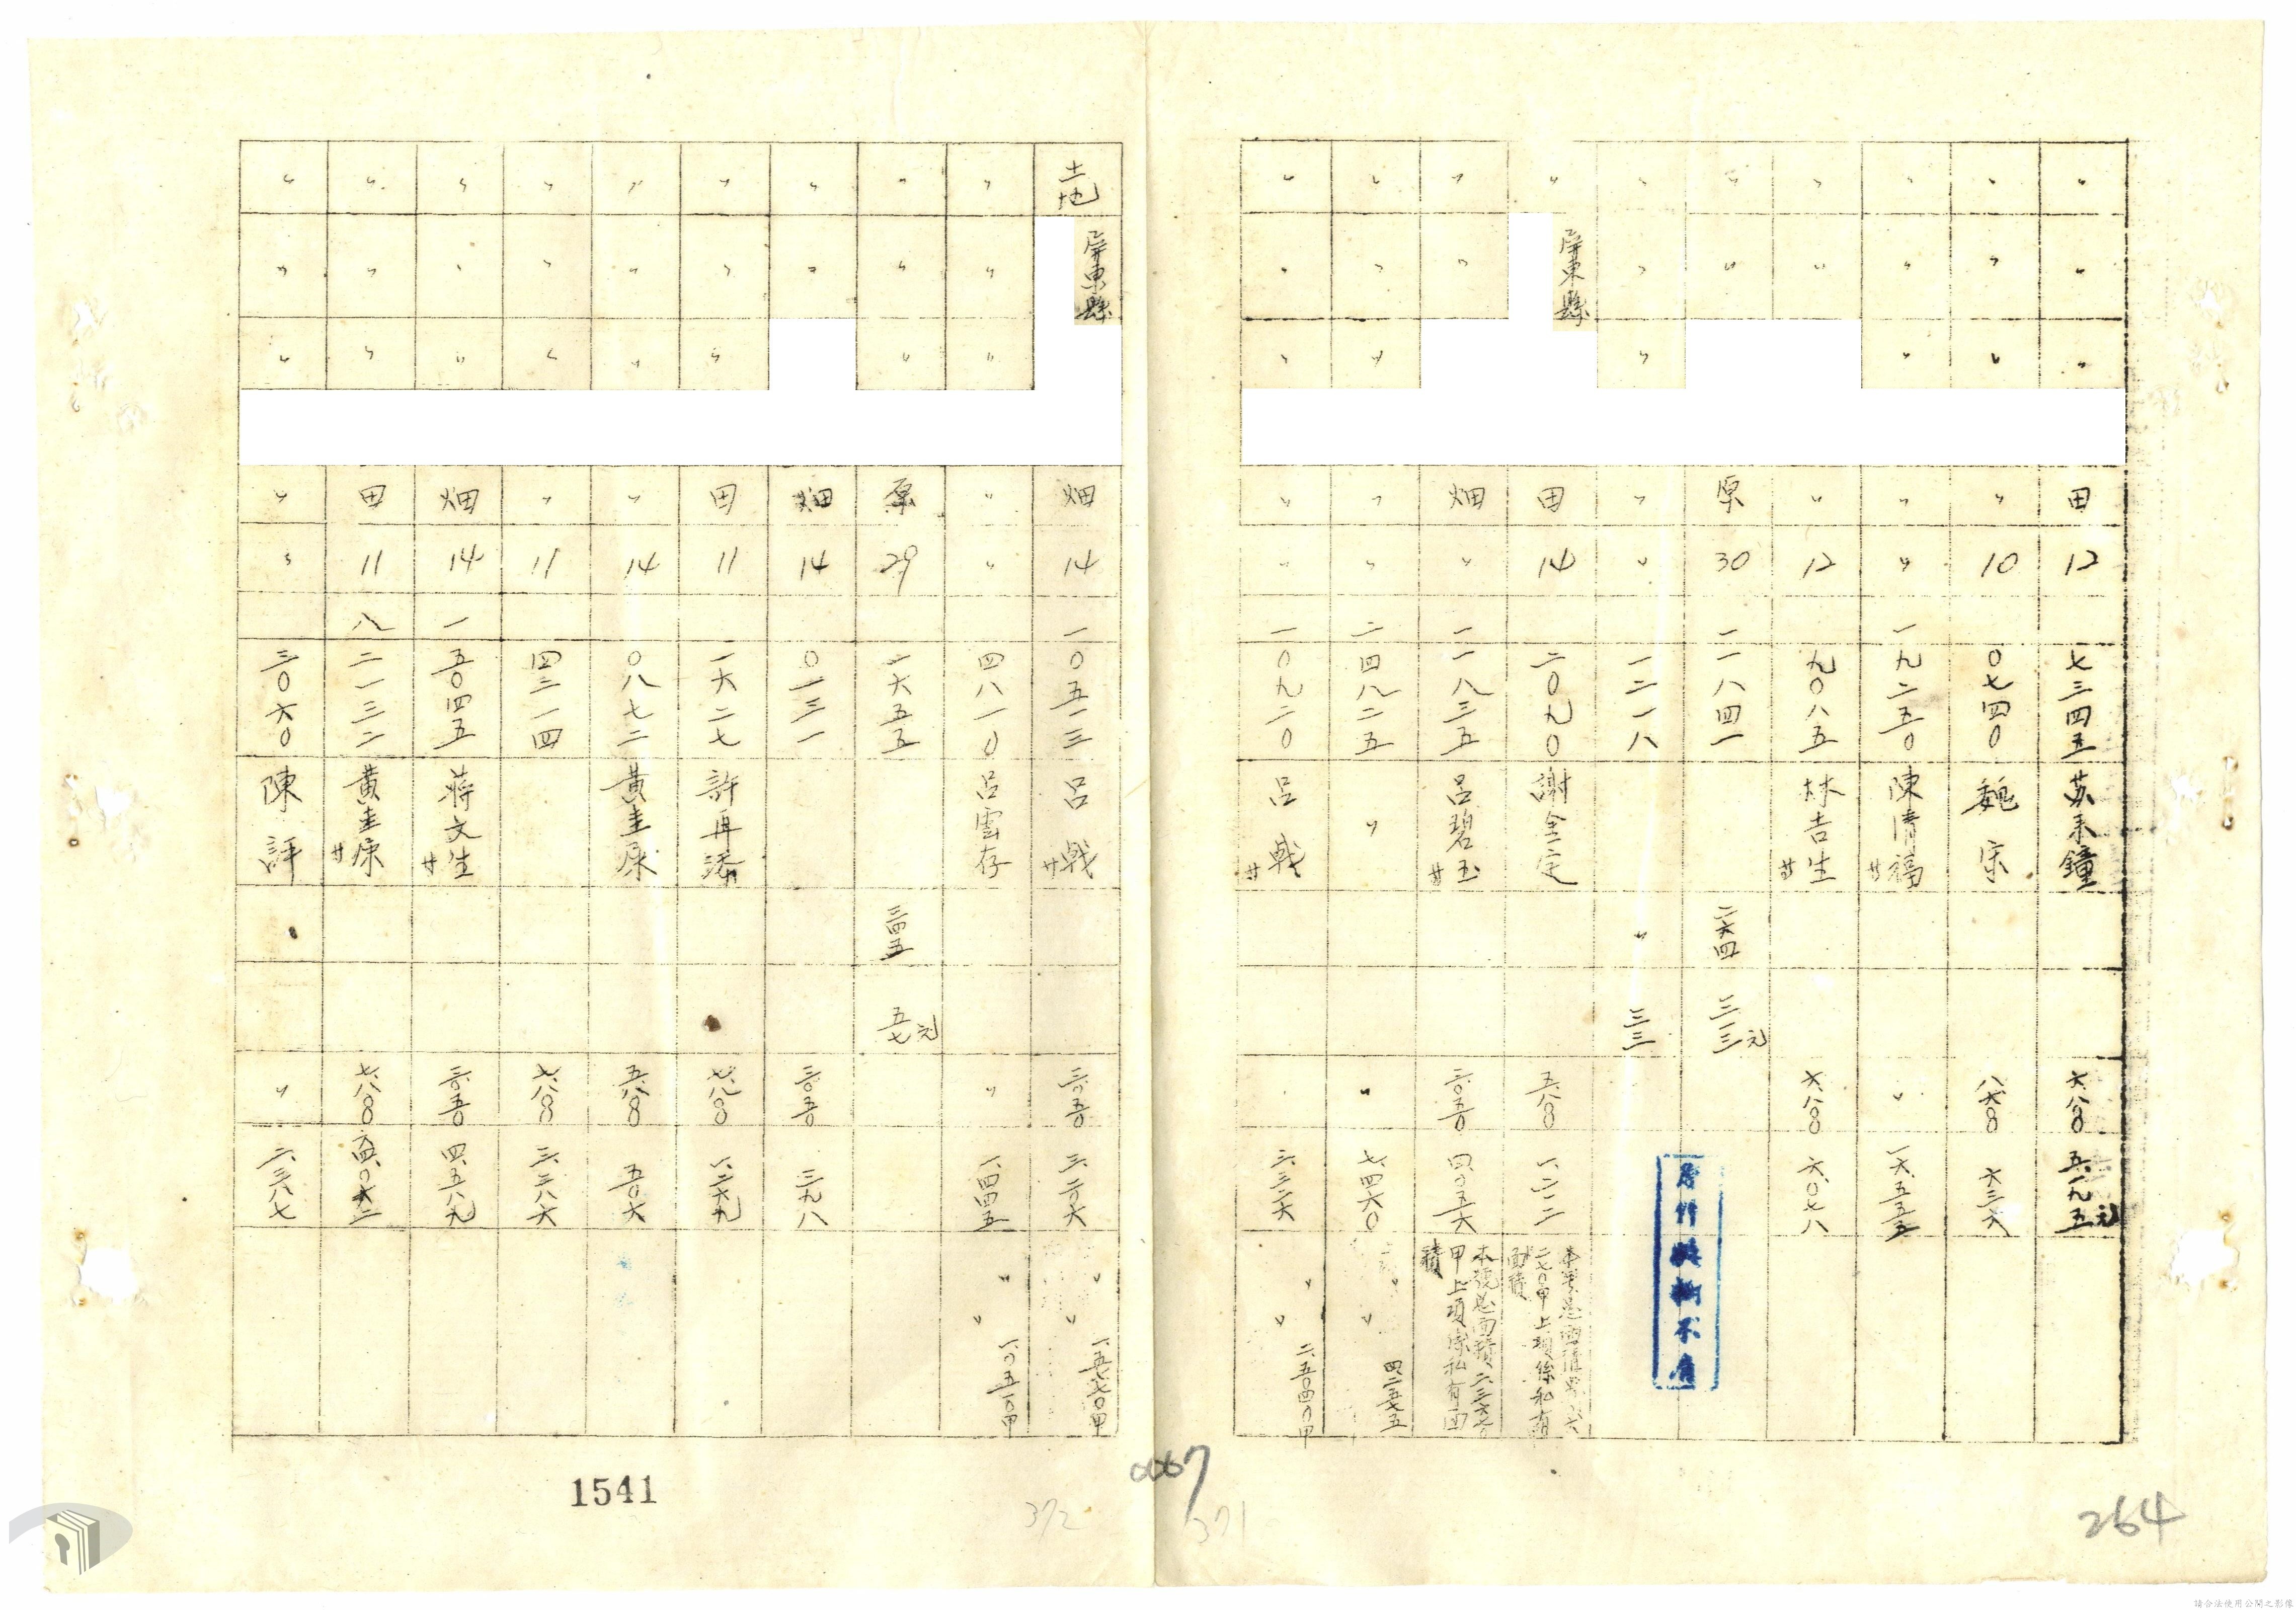 〃 〃 〃 田 12 七三四五 苏来鐘 六.八〇〇 五.一九五元
〃 〃 〃 〃 10 〇七四〇 魏宗 八.六〇〇 六三六
〃 〃 〃 〃 〃 一 九二五〇 陳清福 廿 〃 一六.五五五
〃 〃 〃 12 九〇八五 林吉生 廿 六.八〇〇 六.〇七八
〃 〃 原 30 一 一八四一 二六四 三三元
〃 〃 〃 〃 〃 一二一八 〃 三三
〃 屏東縣 田 14 二〇九〇 謝金定 五.八〇〇 一.二一二
〃 〃 畑 〃 一 一八三五 呂碧玉 廿 三.〇五〇 四.〇五六
〃 〃 〃 〃 〃 二 四八二五 〃 〃 七.四六〇
〃 〃 〃 〃 〃 一 〇九二〇 呂戟 廿 〃 〃 〃 二.五〇四〇甲
原件模糊不清
264
371
0067
土地 屏東縣 畑 14 一 〇五一三 呂戟 廿 三.〇五〇 三.二〇六 〃 〃 一.五七七〇甲
〃 〃 〃 〃 〃 四八一〇 呂雲存 〃 一.四四五 〃 〃
〃 〃 〃 原 29 一六五五 三四五 五七元
〃 〃 畑 14 〇一三一 三.〇五〇 三九八
〃 〃 〃 田 11 一六二七 許再添 七.八〇〇 一.二六九
〃 〃 〃 〃 14 〇八七二 黃圭康 五.八〇〇 五〇六
〃 〃 〃 〃 11 四二一四 七.八〇〇 三.二八六
〃 〃 〃 畑 14 一 五〇四五 蔣文生 廿 三.〇五〇 四.五八九
〃 〃 〃 田 11 八 二一三二 黃圭康 廿 七.八〇〇 六四.〇六二
〃 〃 〃 〃 〃 三〇六〇 陳評 〃 二.三八七
1541
372
請合法使用公開之影像